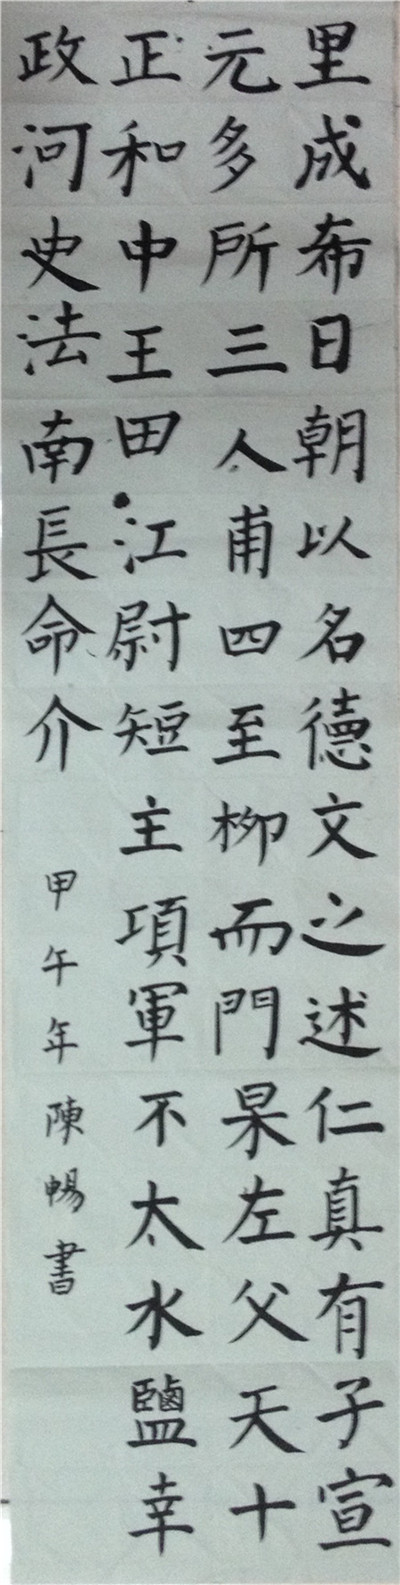 里成希日朝以名德文之述仁真有子宣
元多所三人甫四至柳而門杲左父天十
正和中王田江尉短主項軍不太水鹽幸
政河史法南長命介
甲午年陳暢書